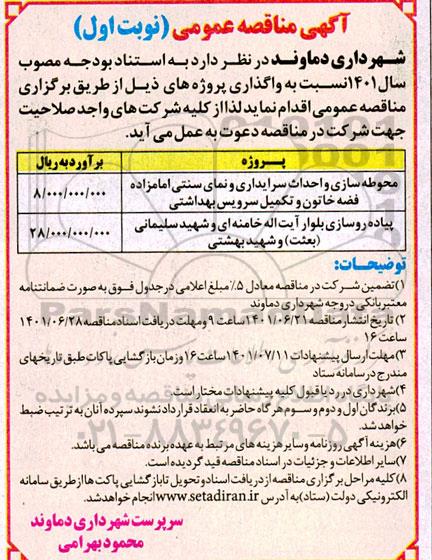 آگهی مناقصه عمومی (نوبت اول)
شهرداری دماوند در نظر دارد به استناد بودجه مصوب
سال ۱۴۰۱ نسبت به واگذاری پروژه های ذیل از طریق برگزاری
مناقصه عمومی اقدام نماید لذا از کلیه شرکت های واجد صلاحیت
جهت شرکت در مناقصه دعوت به عمل می آید.
پــروژه برآورد به ریال
محوطه سازی و احداث سرایداری و نمای سنتی امامزاده
فضه خاتون و تکمیل سرویس بهداشتی
۸/۰۰۰/۰۰۰/۰۰۰
پیاده روسازی بلوار آیت اله خامنه ای و شهید سلیمانی
(بعثت) و شهید بهشتی
۲۸/۰۰۰/۰۰۰/۰۰۰
توضیحــات:
۱) تضمین شرکت در مناقصه معادل ۵٪ مبلغ اعلامی در جدول فوق به صورت ضمانتنامه
معتبر بانکی در وجه شهرداری دماوند
۲) تاریخ انتشار مناقصه ۱۴۰۱/۰۶/۲۱ ساعت ۹ و مهلت دریافت اسناد مناقصه ۱۴۰۱/۰۶/۲۸
ساعت ۱۶
۳) مهلت ارسال پیشنهادات ۱۴۰۱/۰۷/۱۱ ساعت ۱۶ و زمان بازگشایی پاکات طبق تاریخهای
مندرج در سامانه ستاد
۴) شهرداری در رد یا قبول کلیه پیشنهادات مختار است.
۵) برندگان اول و دوم و سوم هرگاه حاضر به انعقاد قرارداد نشوند سپرده آنان به ترتیب ضبط
خواهد شد.
۶) هزینه آگهی روزنامه و سایر هزینه های مرتبط به عهده برنده مناقصه می باشد.
۷) سایر اطلاعات و جزئیات در اسناد مناقصه قید گردیده است.
۸) کلیه مراحل برگزاری مناقصه از دریافت اسناد و تحویل تا بازگشایی پاکت ها از طریق سامانه
الکترونیکی دولت (ستاد) به آدرس www.setadiran.ir انجام خواهد شد.
سرپرست شهرداری دماوند
محمود بهرامی
۰۲۱-۸۸۳۴۹۶۷۰-۵